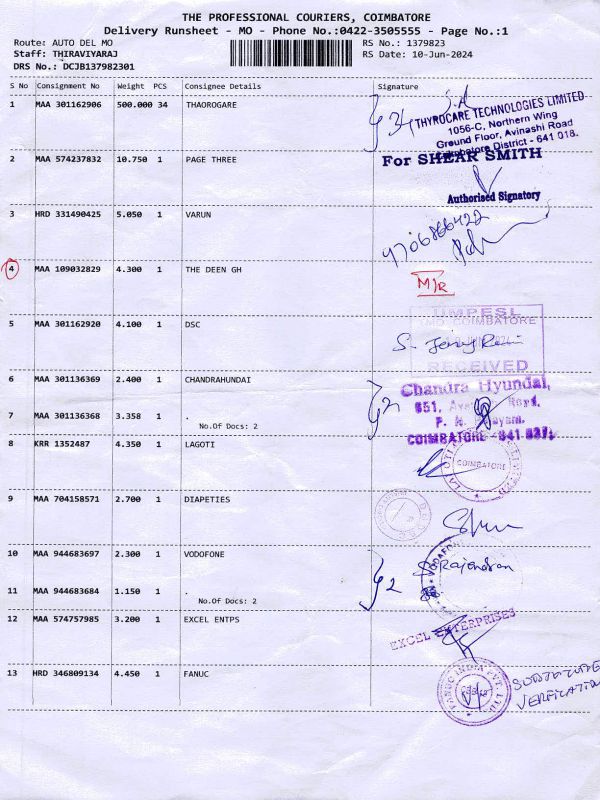 THE PROFESSIONAL COURIERS, COIMBATORE
Delivery Runsheet - MO - Phone No.:0422-3505555 - Page No.:1
Route: AUTO DEL MO RS No.: 1379823
Staff: THIRAVIYARAJ RS Date: 10-Jun-2024
DRS No.: DCJB137982301
S No Consignment No Weight PCS Consignee Details Signature
1 MAA 301162906 500.000 34 THAOROGARE
34
THYROCARE TECHNOLOGIES LIMITED
1056-C, Northern Wing
Ground Floor, Avinashi Road
District - 641 018.
2 MAA 574237832 10.750 1 PAGE THREE
For SHEAR SMITH
Authorised Signatory
3 HRD 331490425 5.050 1 VARUN
4 MAA 109032829 4.300 1 THE DEEN GH
M/R
5 MAA 301162920 4.100 1 DSC
COIMBATORE
RECEIVED
6 MAA 301136369 2.400 1 CHANDRAHUNDAI
Chandra Hyundai,
7 MAA 301136368 3.358 1 .
No.Of Docs: 2
2
COIMBATORE
8 KRR 1352487 4.350 1 LAGOTI
COIMBATORE
9 MAA 704158571 2.700 1 DIAPETIES
10 MAA 944683697 2.300 1 VODOFONE
Rajendran
11 MAA 944683684 1.150 1 .
No.Of Docs: 2
2
12 MAA 574757985 3.200 1 EXCEL ENTPS
EXCEL ENTERPRISES
13 HRD 346809134 4.450 1 FANUC
FANUC INDIA PVT. LTD.